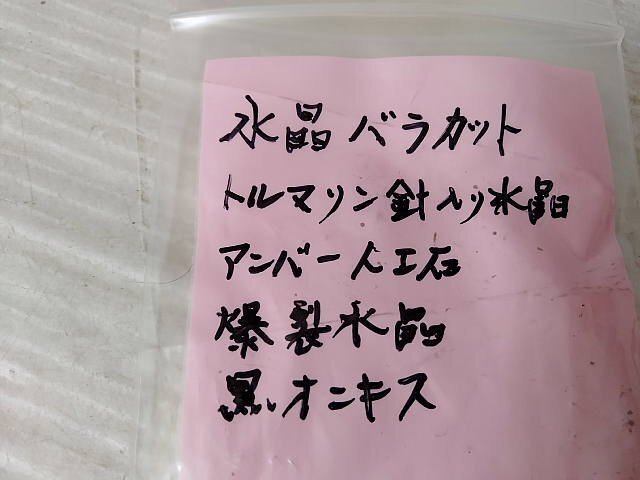 水晶バラカット
トルマリン針入り水晶
アンバー人工石
爆製水晶
黒オニキス